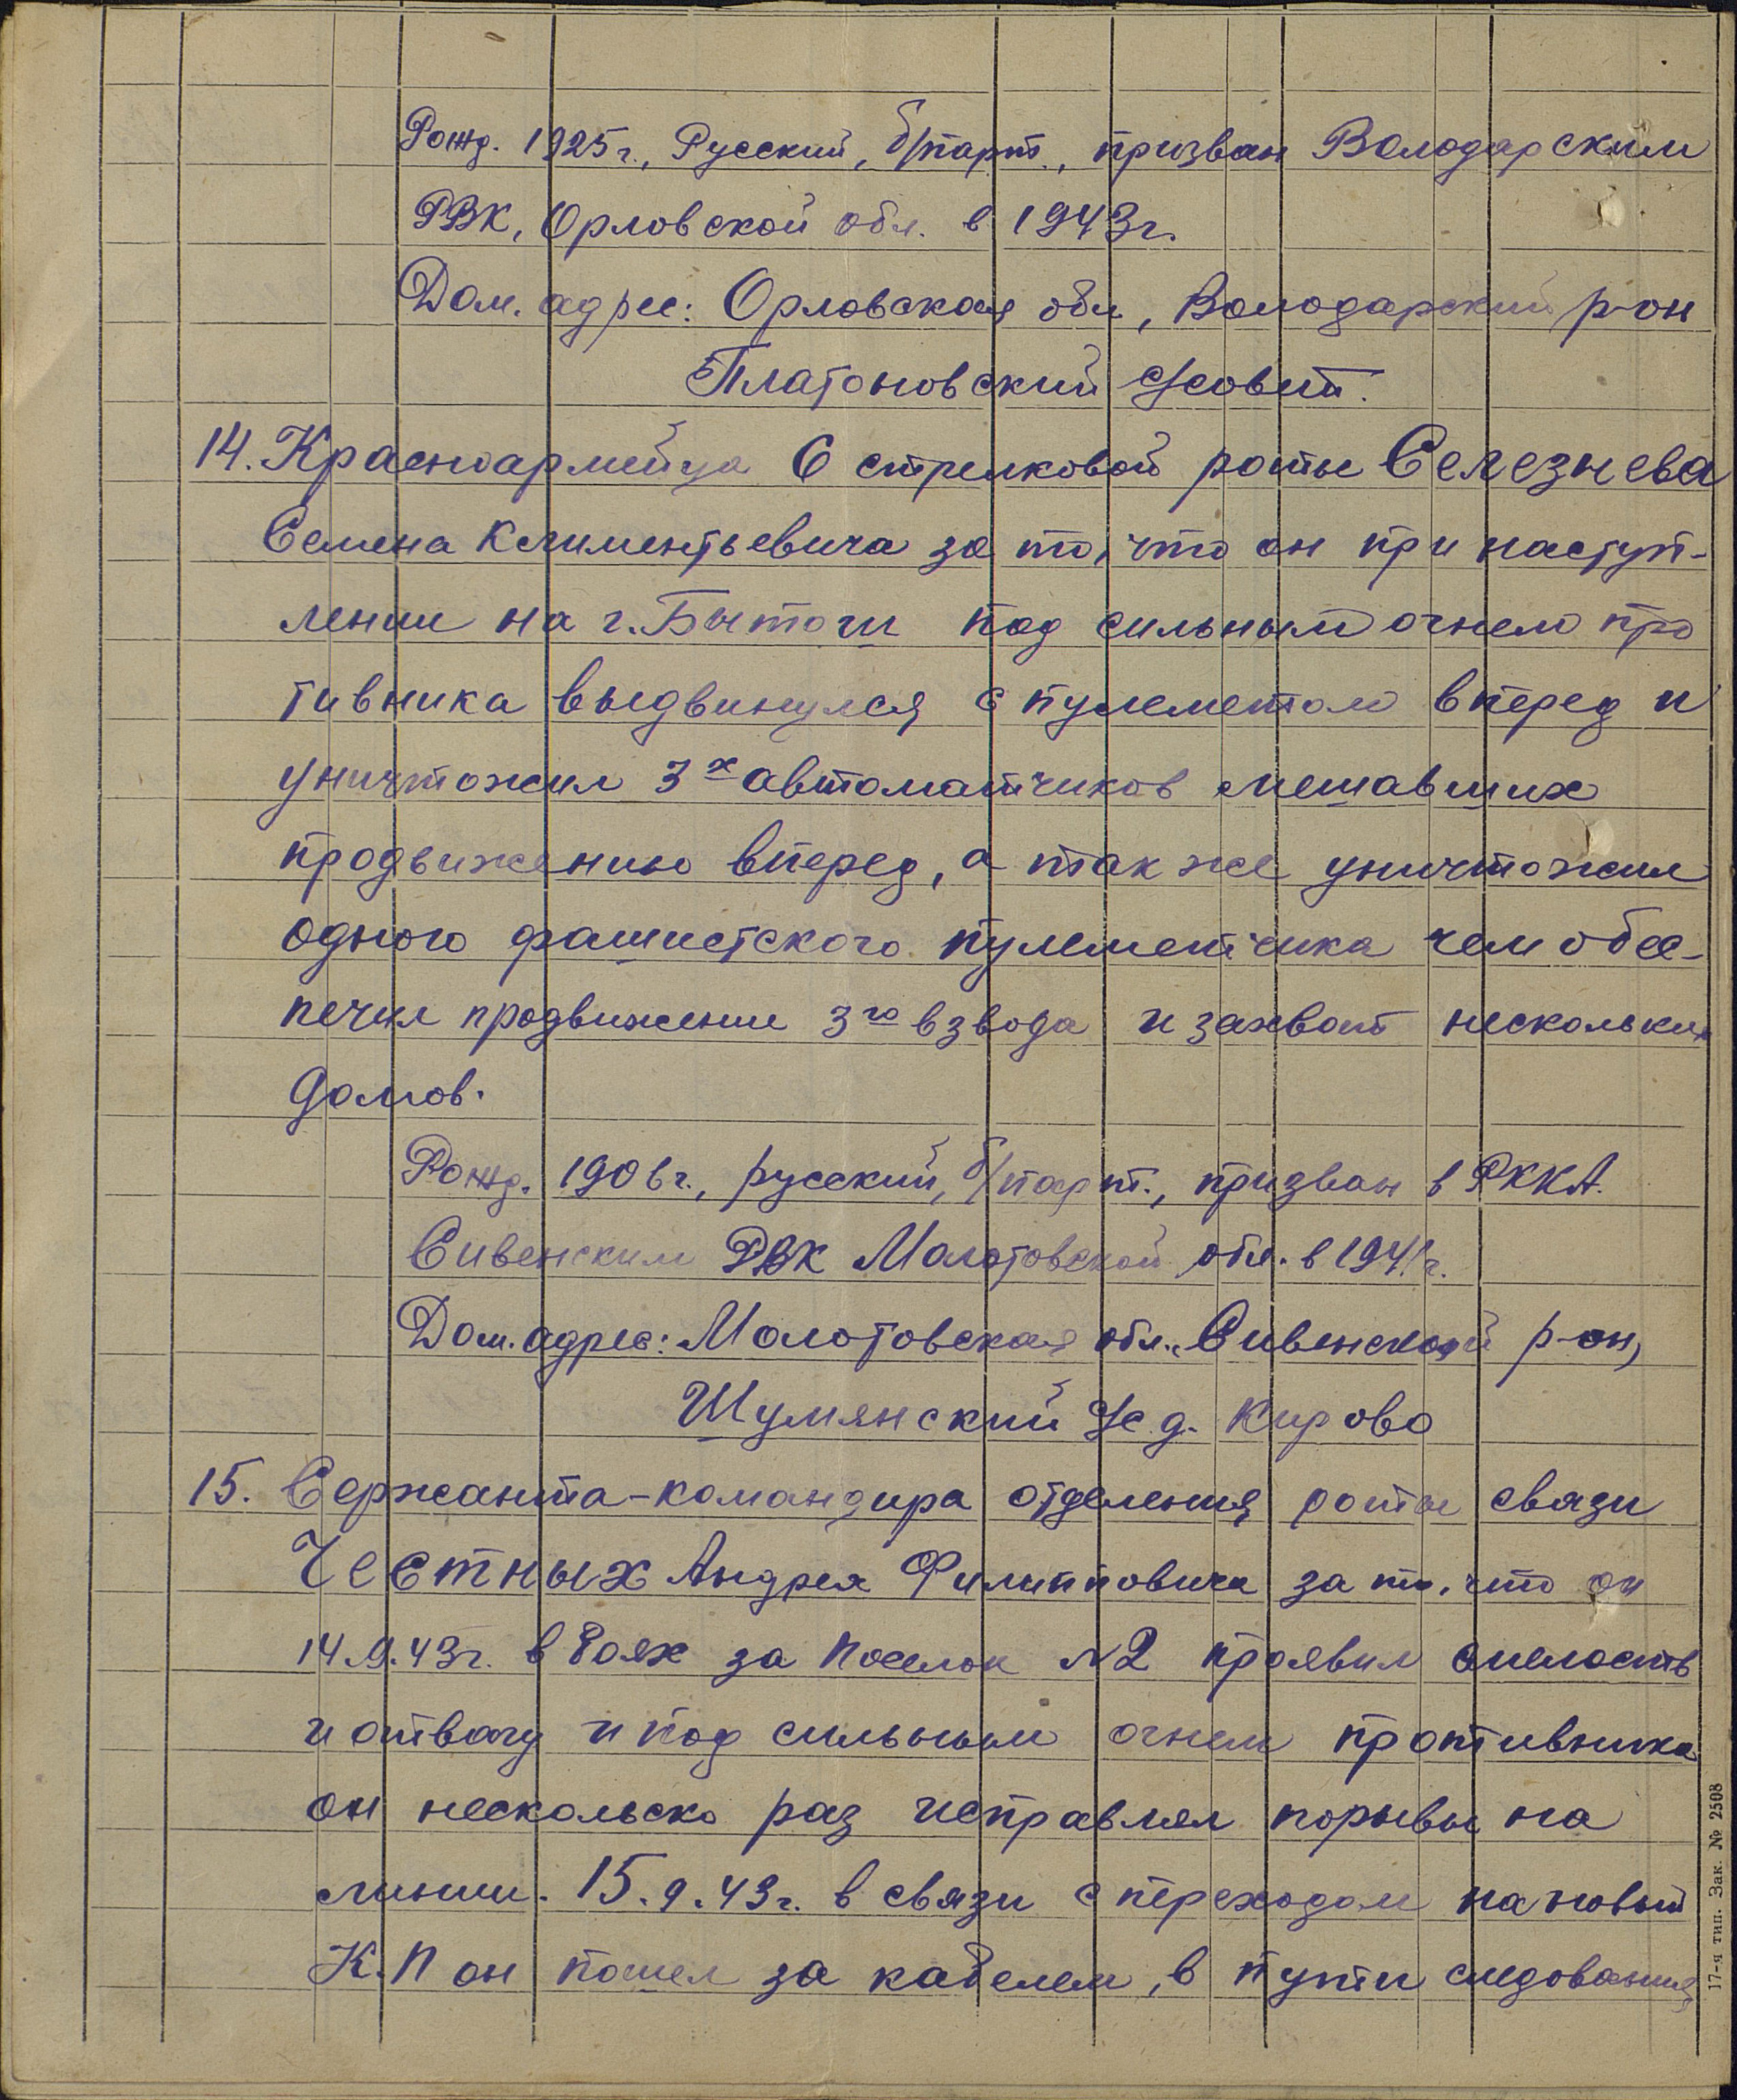 Рожд. 1925г., Русский, б/парт., призван Володарским
РВК, Орловской обл. в 1943г.
Дом. адрес: Орловская обл, Володарский р-он
Платоновский с/совет.
14. Красноармейца 6 стрелковой роты Селезнева
Семена Климентьевича за то, что он при наступ-
лении на г. Бытошь под сильным огнем про
тивника выдвинулся с пулеметом вперед и
уничтожил 3х автоматчиков мешавших
продвижению вперед, а так же уничтожил
одного фашистского пулеметчика чем обес-
печил продвижение 3го взвода и захват нескольких
домов.
Рожд. 1906г., русский, б/парт., призван в РККА.
Сивенским РВК Молотовской обл. в 1941г.
Дом. адрес: Молотовская обл., Сивенский р-он,
Шумянский с/с д. Кирово
15. Сержанта-командира отделения роты связи
Честных Андрея Филипповича за то, что он
14.9.43г. в боях за поселок №2 проявил смелость
и отвагу и под сильным огнем противника
он несколько раз исправлял порывы на
линии. 15.9.43г. в связи с переходом на новый
К.П он пошел за кабелем, в пути следования
17-я тип. Зак. № 2508